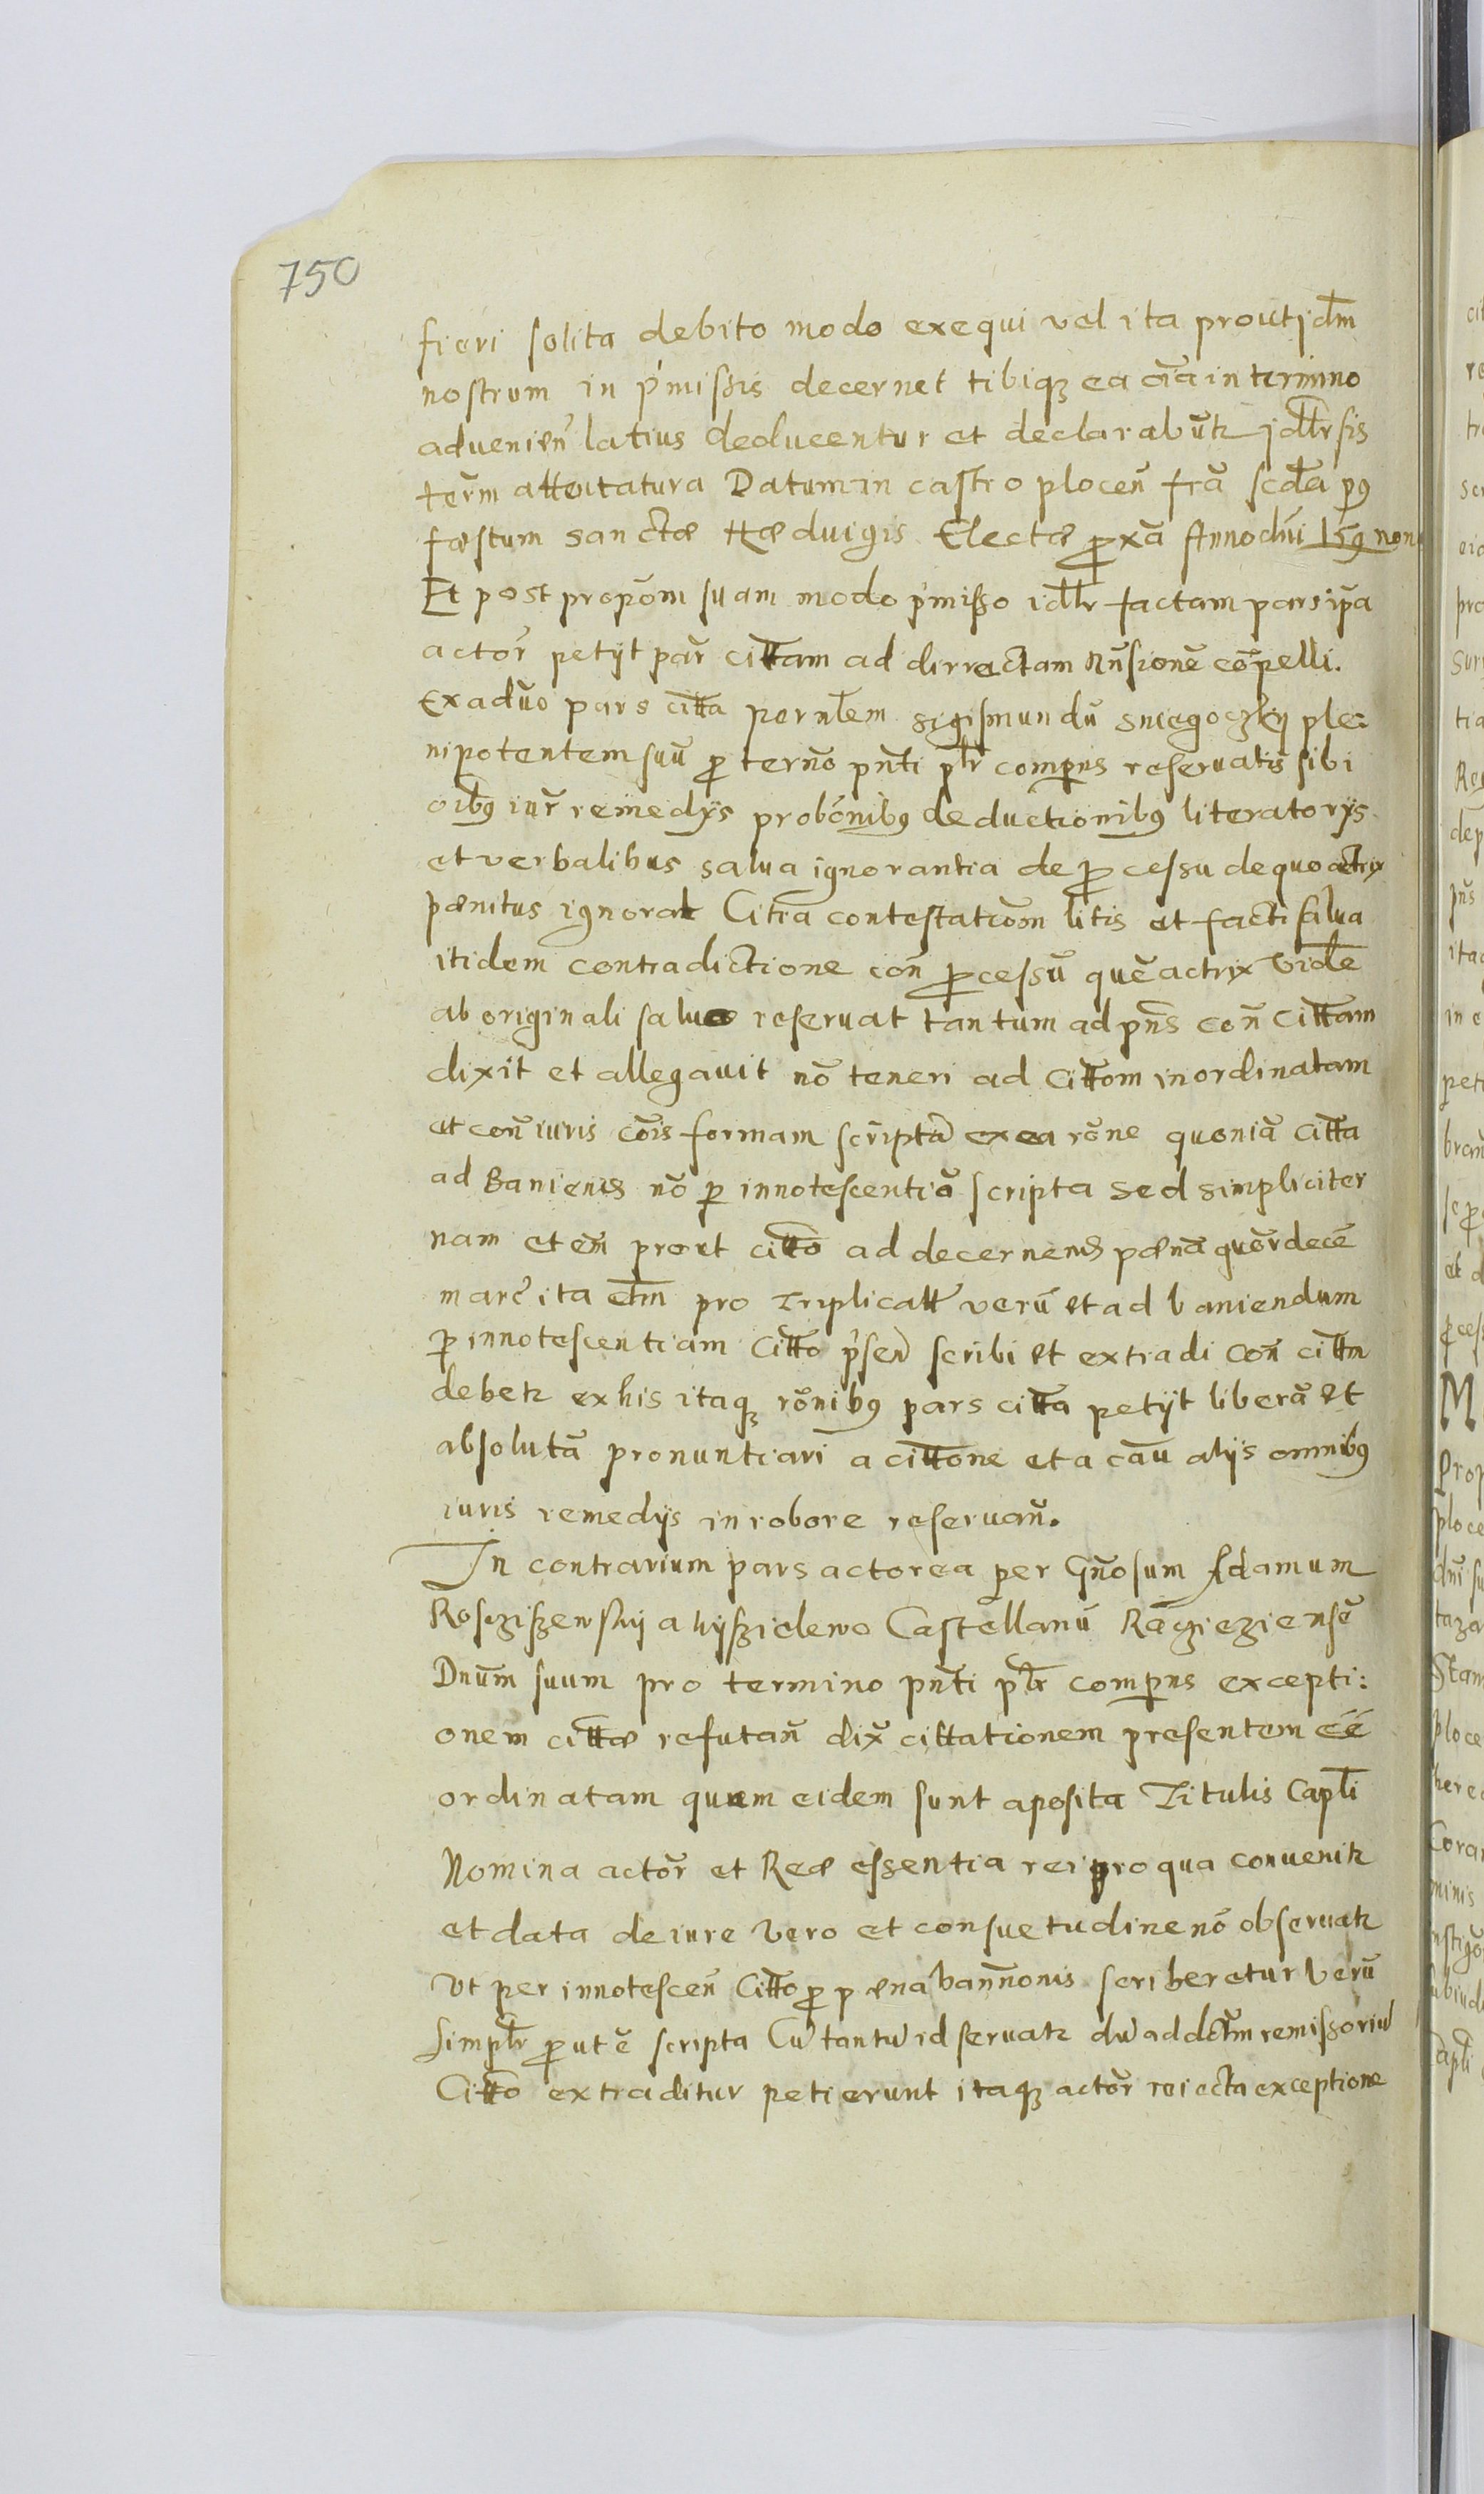 750
fieri solita debito modo exequi vel ita prout jdm̄
nostrum in p̓missis decernet tibiqꝫ ea oīa in termino
advenien̄ latius deducentur et declarabūtr jdtr̄ sis
ter̄m attentatura Datum in castro plocen̄ fr̄a scd̄a pꝰ
fæstum sanctæ Hædvigis Electæ ꝓxā Anno dn̄i 159 non
Et post propōm suam modo p̓misso idtr̄ factam pars ip̄a
actor̄ petijt par̄ citt̄am ad dirrectam rn̄sionē cōpelli.
Ex adūo pars citt̄a per nb̄lem sigismundū sniegoczkij ple:
nipotentem suū ꝓ terno̅ pn̄ti pt̄r compens reseruatis sibi
oibꝰ iur̄ remedijs probōnibꝰ deductionibꝰ literatorijs
et verbalibus salua ignorantia de ꝓcessu de quo actrix
pænitus ignorat Citra contestatiōm litis et facti salua
itidem contradictione con̄ ꝓcessū quē actrix vidē
ab originali saluæ reseruat tantum ad pn̄s con̄ citt̄am
dixit et allegauit nō teneri ad Citt̄om inordinatam
et con̄ iuris cōis formam scriptā ex ea rōne quoniā citt̄a
ad Banienꝫ nō ꝑ innotescentiā scripta sed simpliciter
nam et em̄ prout citt̄o ad decernenꝫ pænā quōrdecē
marc̄ ita etm̄ pro triplicatt̄ verū et ad baniendum
ꝑ innotescentiam Citt̄o p̓sen̄ scribi et extradi con̄ citt̄m
debetr ex his itaqꝫ rōnibꝰ pars citt̄a petijt liberā et
absolutā pronuntiari a citt̄one et a caū alijs omnibꝰ
iuris remedijs in robore reseruan̄.
In contrarium pars actorea per Gn̄osum Adamum
Rosczisewskij a liszielewo Castellanū Raczięziensē
Dnūm suum pro termino pn̄ti pt̄r compens excepti:
onem citt̄æ refutan̄ dix̄ cittationem presentem eē
ordinatam quum eidem sunt aposita Titulis Capt̄li
Nomina actor̄ et Reæ essentia rei pro qua convenitr
et data de iure vero et consuetudine nō obseruatr
Vt per innotescen̄ Citt̄o ꝓ pæna bann̄onis scriberetur verū
simptr̄ ꝓut ē scripta Cū tantū id seruatr dū ad dctm̄ remissoriū
Citt̄o extraditur petierunt itaqꝫ actor̄ reiecta exceptione